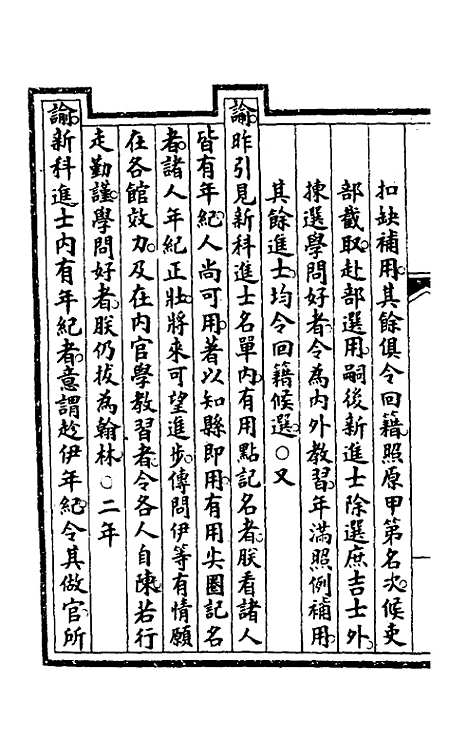 扣缺補用。其餘俱令回籍照原甲第名次。候吏
部截取。赴部選用。嗣後新進士除選庶吉士外。
揀選學問好者。令為内外教習。年滿照例補用。
其餘進士。均令回籍候選。○又
諭。昨引見新科進士名單内。有用點記名者。朕看諸人
皆有年紀。人尚可用。著以知縣即用。有用尖圈記名
者。諸人年紀正壯。將來可望進步。傳問伊等有情願
在各館效力。及在内官學教習者。令各人自陳。若行
走勤謹。學問好者。朕仍拔為翰林。○二年
諭。新科進士内有年紀者。意謂趁伊年紀。令其做官。所